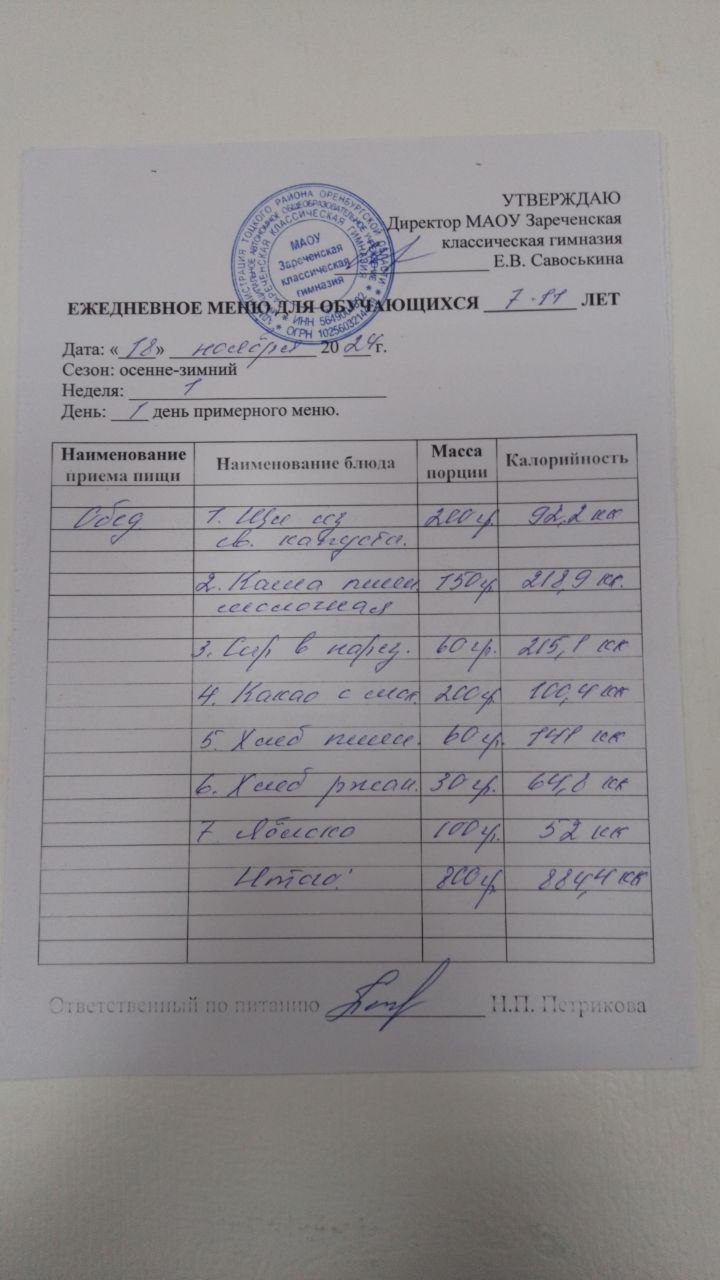 УТВЕРЖДАЮ
Директор МАОУ Зареченская
классическая гимназия
Е.В. Савоськина
МАОУ
Зареченская
классическая
гимназия
ЕЖЕДНЕВНОЕ МЕНЮ ДЛЯ ОБУЧАЮЩИХСЯ 7-11 ЛЕТ
Дата: «18» ноября 2024 г.
Сезон: осенне-зимний
Неделя: 1
День: 1 день примерного меню.
Наименование приема пищи Наименование блюда Масса порции Калорийность
Обед 1. Щи из 200 гр. 92,2 кк
св. капуста.
2. Каша пшен. 150 гр 218,9 кк.
молочная
3. Сыр в нарез. 60 гр. 215,1 кк
4. Какао с мол. 200 гр 100,4 кк
5. Хлеб пшен. 60 гр. 141 кк
6. Хлеб ржан. 30 гр. 64,8 кк
7. Яблоко 100 гр. 52 кк
Итого: 800 гр 884,4 кк
Ответственный по питанию Н.П. Петрикова